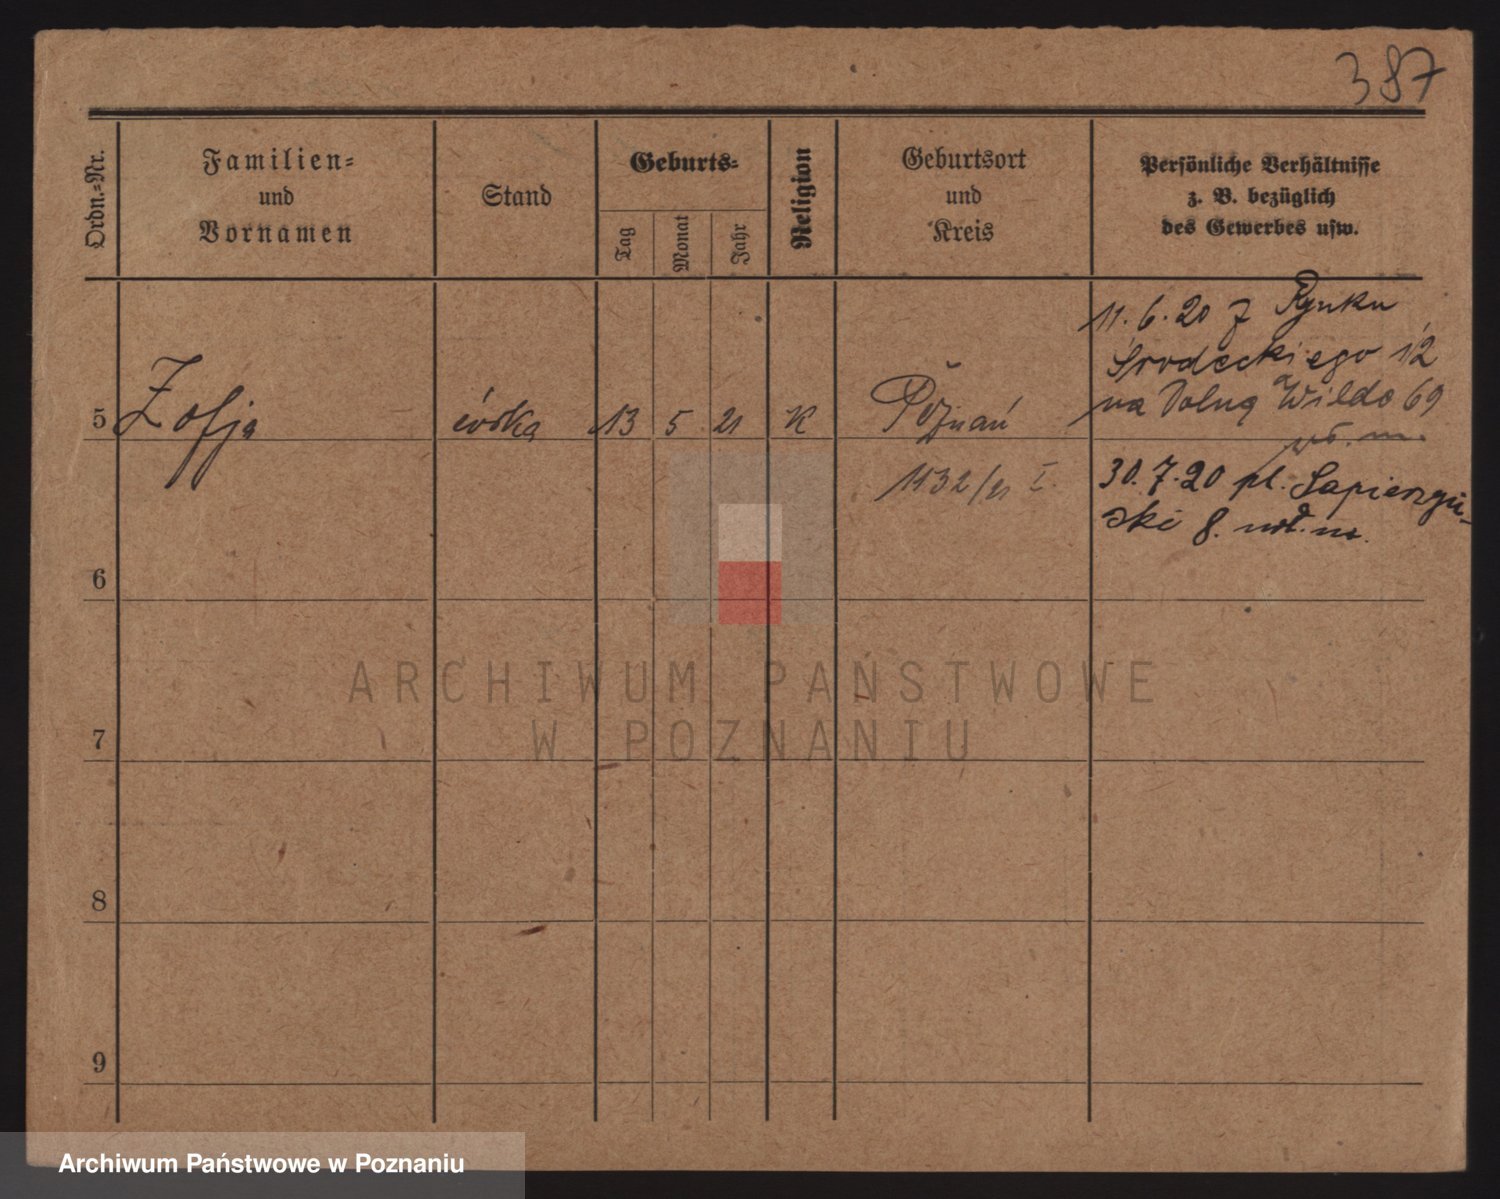 387
Ordn.=Nr.
Familien=
und
Vornamen
Stand
Geburts=
Tag
Monat
Jahr
Religion
Geburtsort
und
Kreis
Persönliche Verhältnisse
z. B. bezüglich
des Gewerbes usw.
11.6.20 z Rynku
Srodeckiego 12
na Dolną Wildę 69
5 Zofja córka 13 5 21 K Poznań
1132/21 I.
30.7.20 pl. Sapieżyń-
ski 8.
6
7
8
9
ARCHIWUM PAŃSTWOWE
W POZNANIU
Archiwum Państwowe w Poznaniu